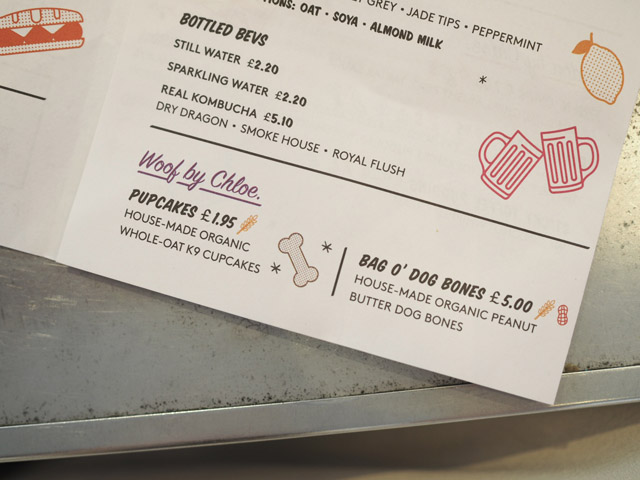 GREY • JADE TIPS • PEPPERMINT
OAT • SOYA • ALMOND MILK
BOTTLED BEVS
STILL WATER £2.20
SPARKLING WATER £2.20
REAL KOMBUCHA £5.10
DRY DRAGON • SMOKE HOUSE • ROYAL FLUSH
Woof by Chloe.
PUPCAKES £1.95
HOUSE-MADE ORGANIC
WHOLE-OAT K9 CUPCAKES
BAG O' DOG BONES £5.00
HOUSE-MADE ORGANIC PEANUT
BUTTER DOG BONES